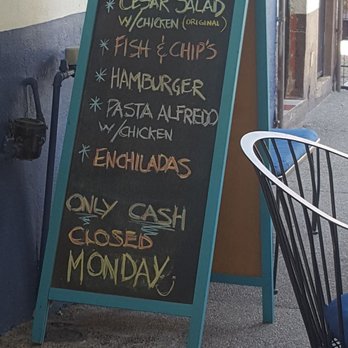 * CESAR SALAD
W/CHICKEN (ORIGINAL)
* FISH & CHIP'S
* HAMBURGER
* PASTA ALFREDO
W/CHICKEN
* ENCHILADAS
ONLY CASH
CLOSED
MONDAY